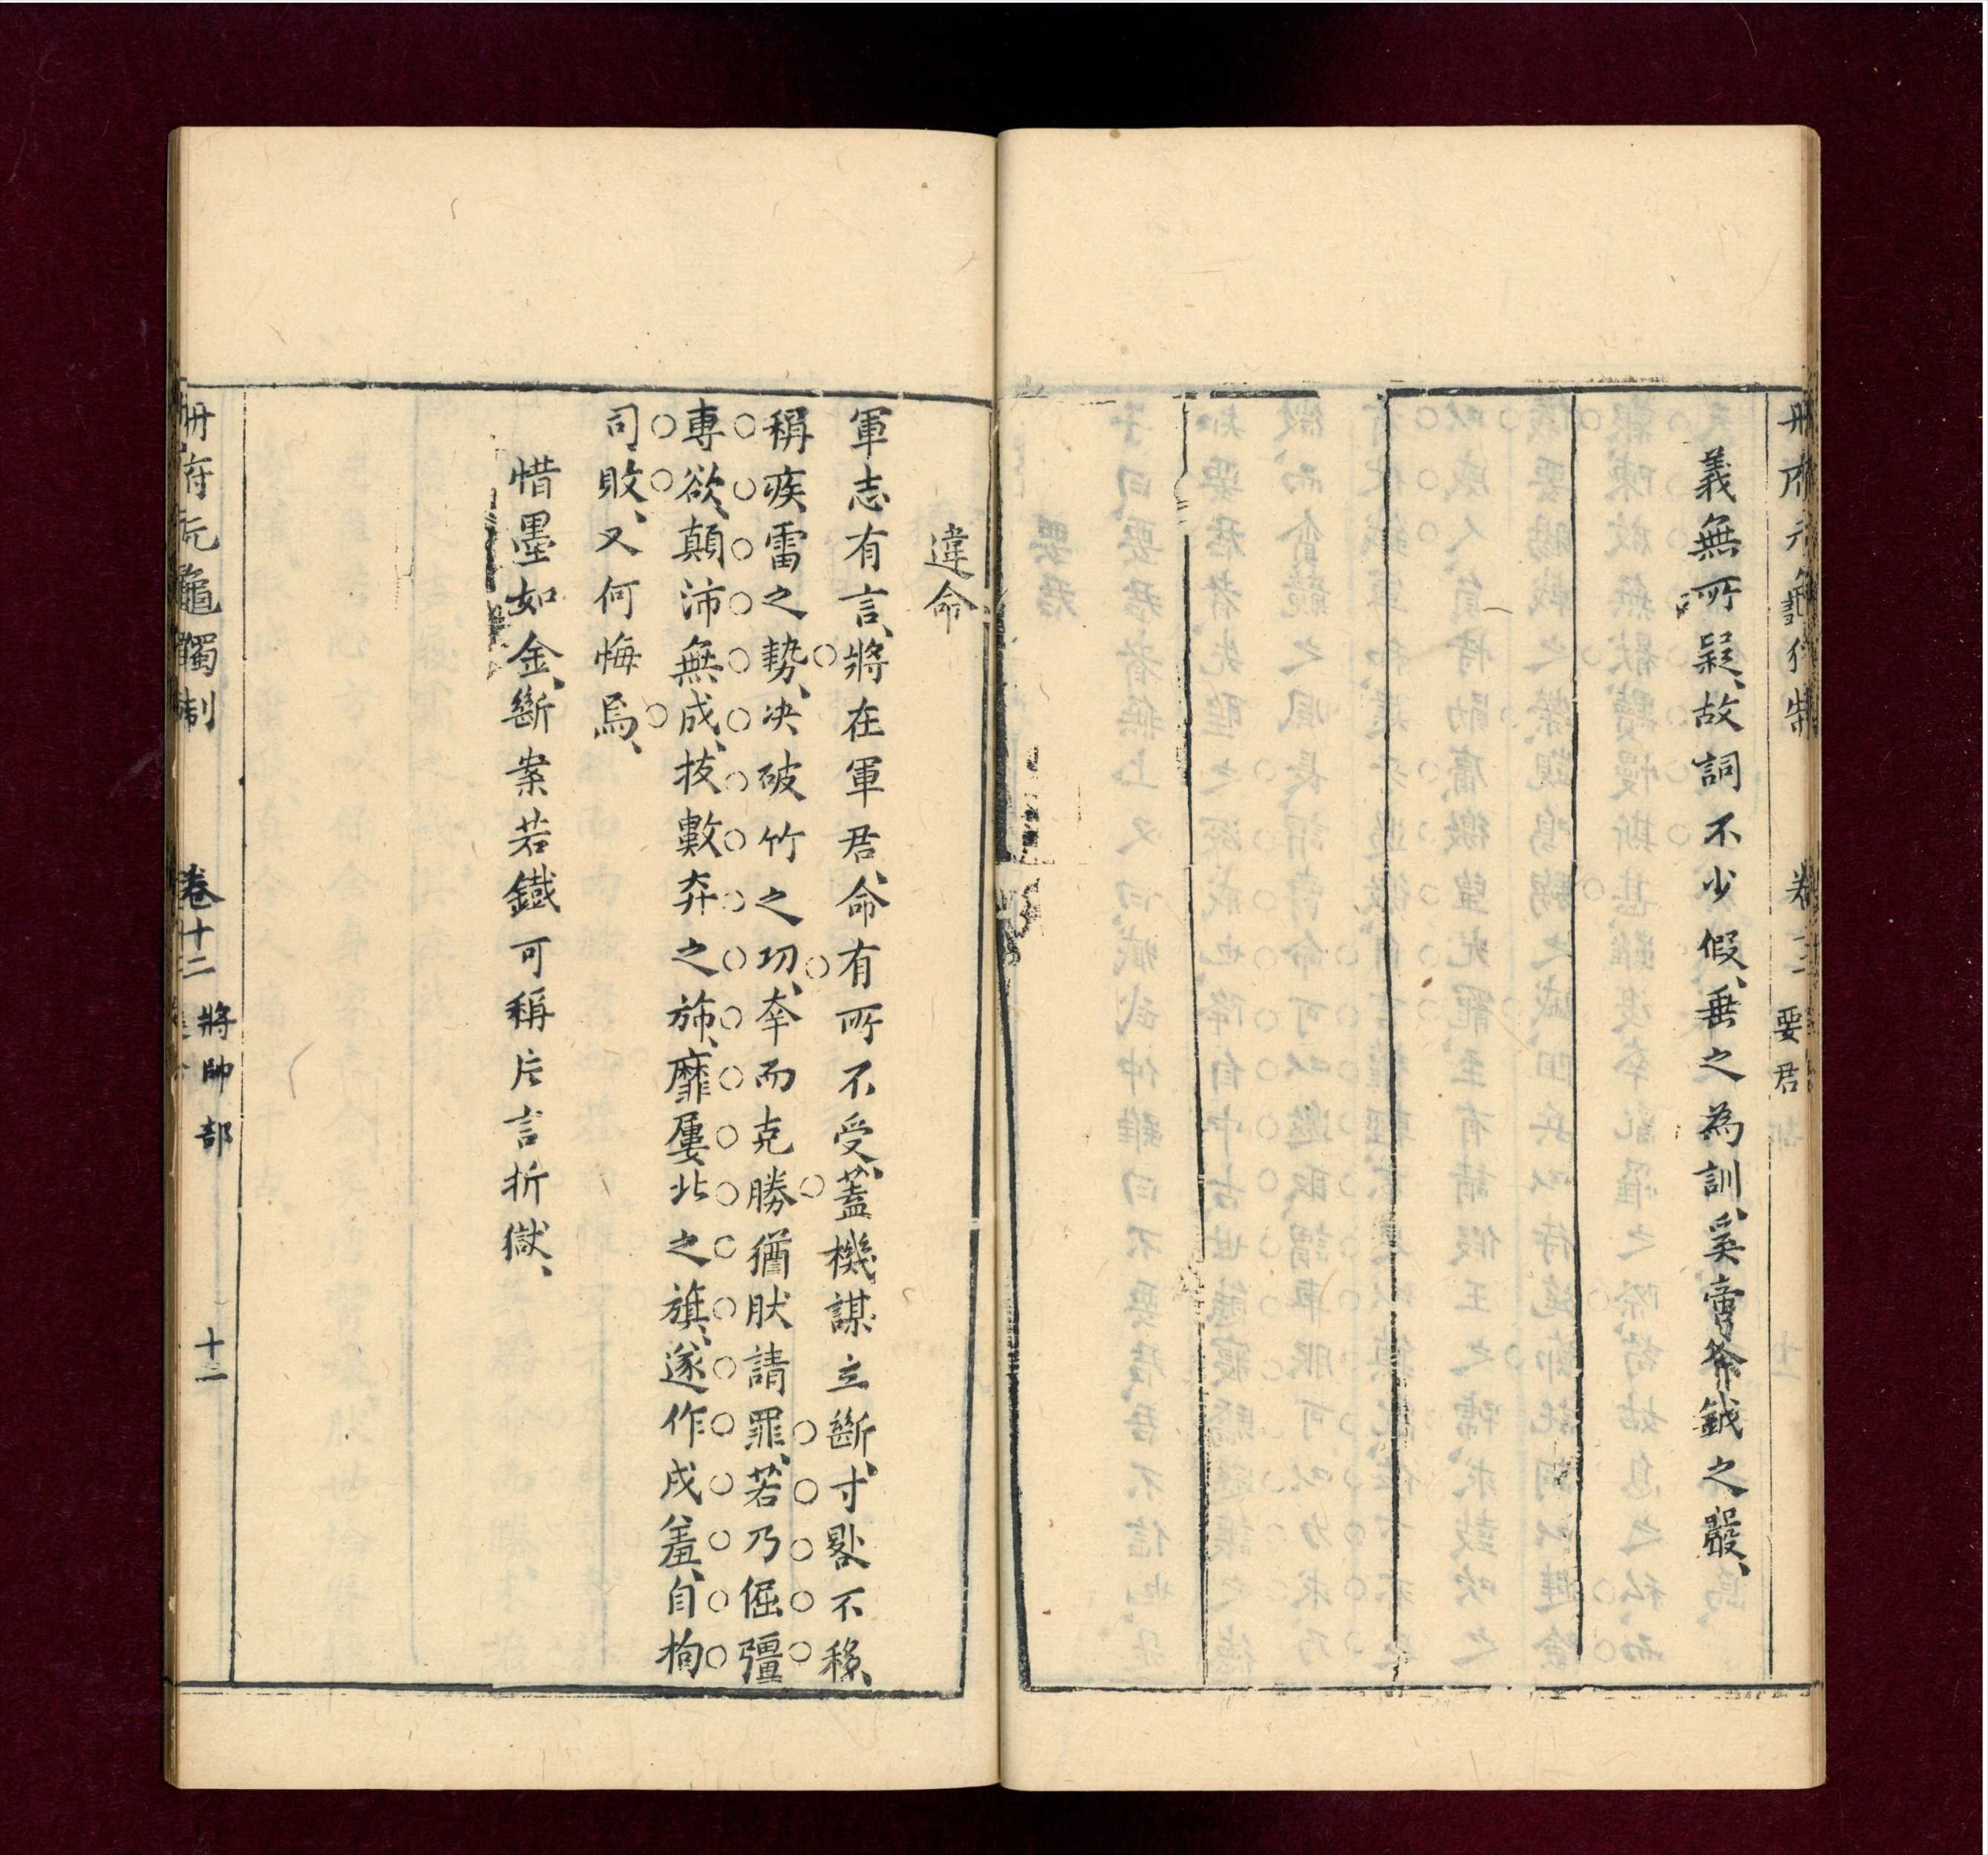 冊府元龜獨制 卷十二 要君
義無所疑、故詞不少假、垂之為訓、奚啻斧鉞之嚴、
違命
軍志有言、將在軍君、命有所不受、蓋機謀立斷、寸晷不移、
稱疾雷之勢、决破竹之功、奉而克勝猶肰請罪、若乃倔彊
專欲、顛沛無成、技數弃之斾、靡屢北之旗、遂作戍羞、自拘
司敗、又何悔焉、
惜墨如金、斷案若鐵可稱片言折獄、
冊府元龜獨制 卷十二 將帥部 十二